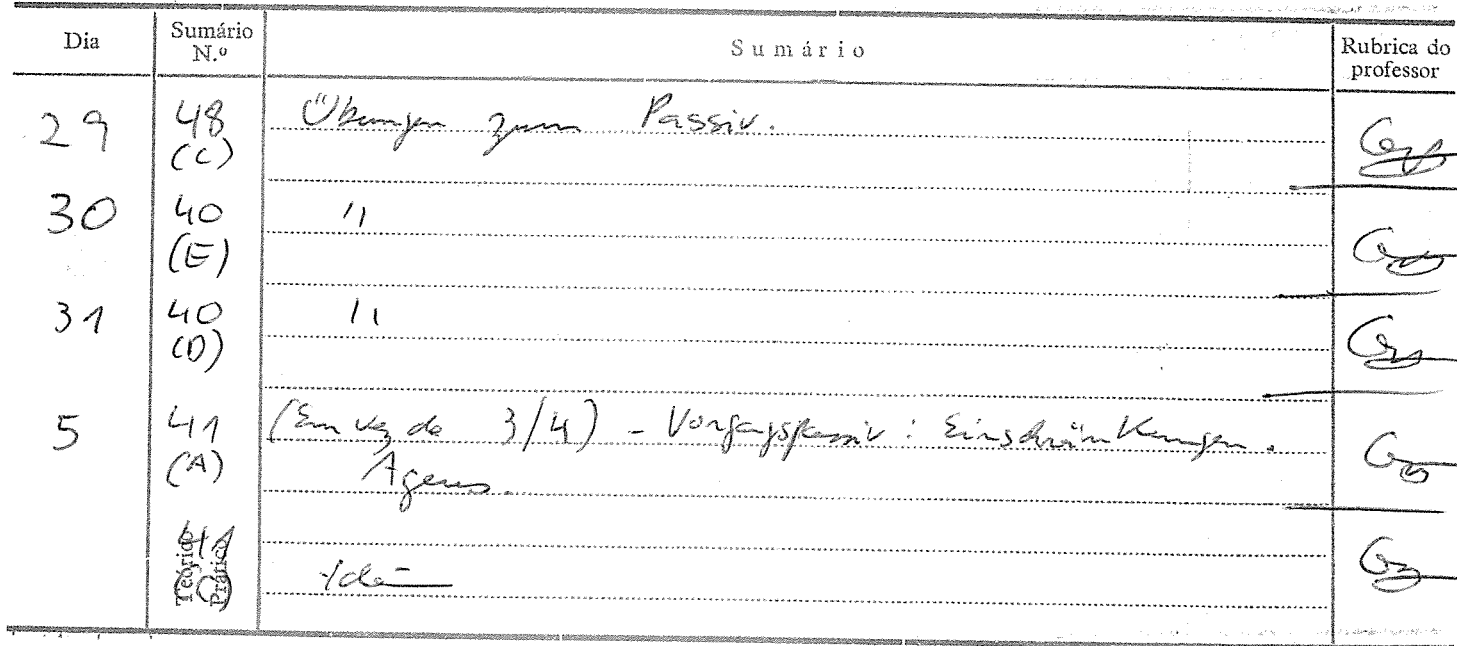 Dia Sumário N.º Sumário Rubrica do professor
29 48 (C) Übungen zum Passiv.
30 40 (E) "
31 40 (D) "
5 41 (A) (Em vez de 3/4) - Vorgangspassiv: Einschränkungen.
Agens.
41 Teórico Prático Idem